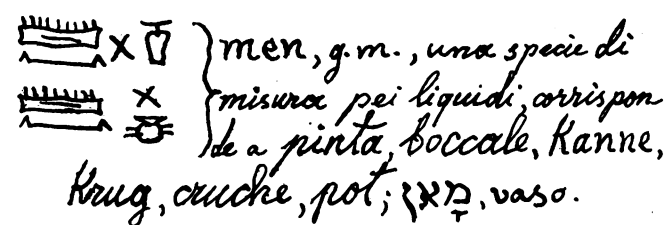 men, g.m., una specie di
misura pei liquidi, corrispon
de a pinta, boccale, Kanne,
Krug, cruche, pot; מָאן, vaso.